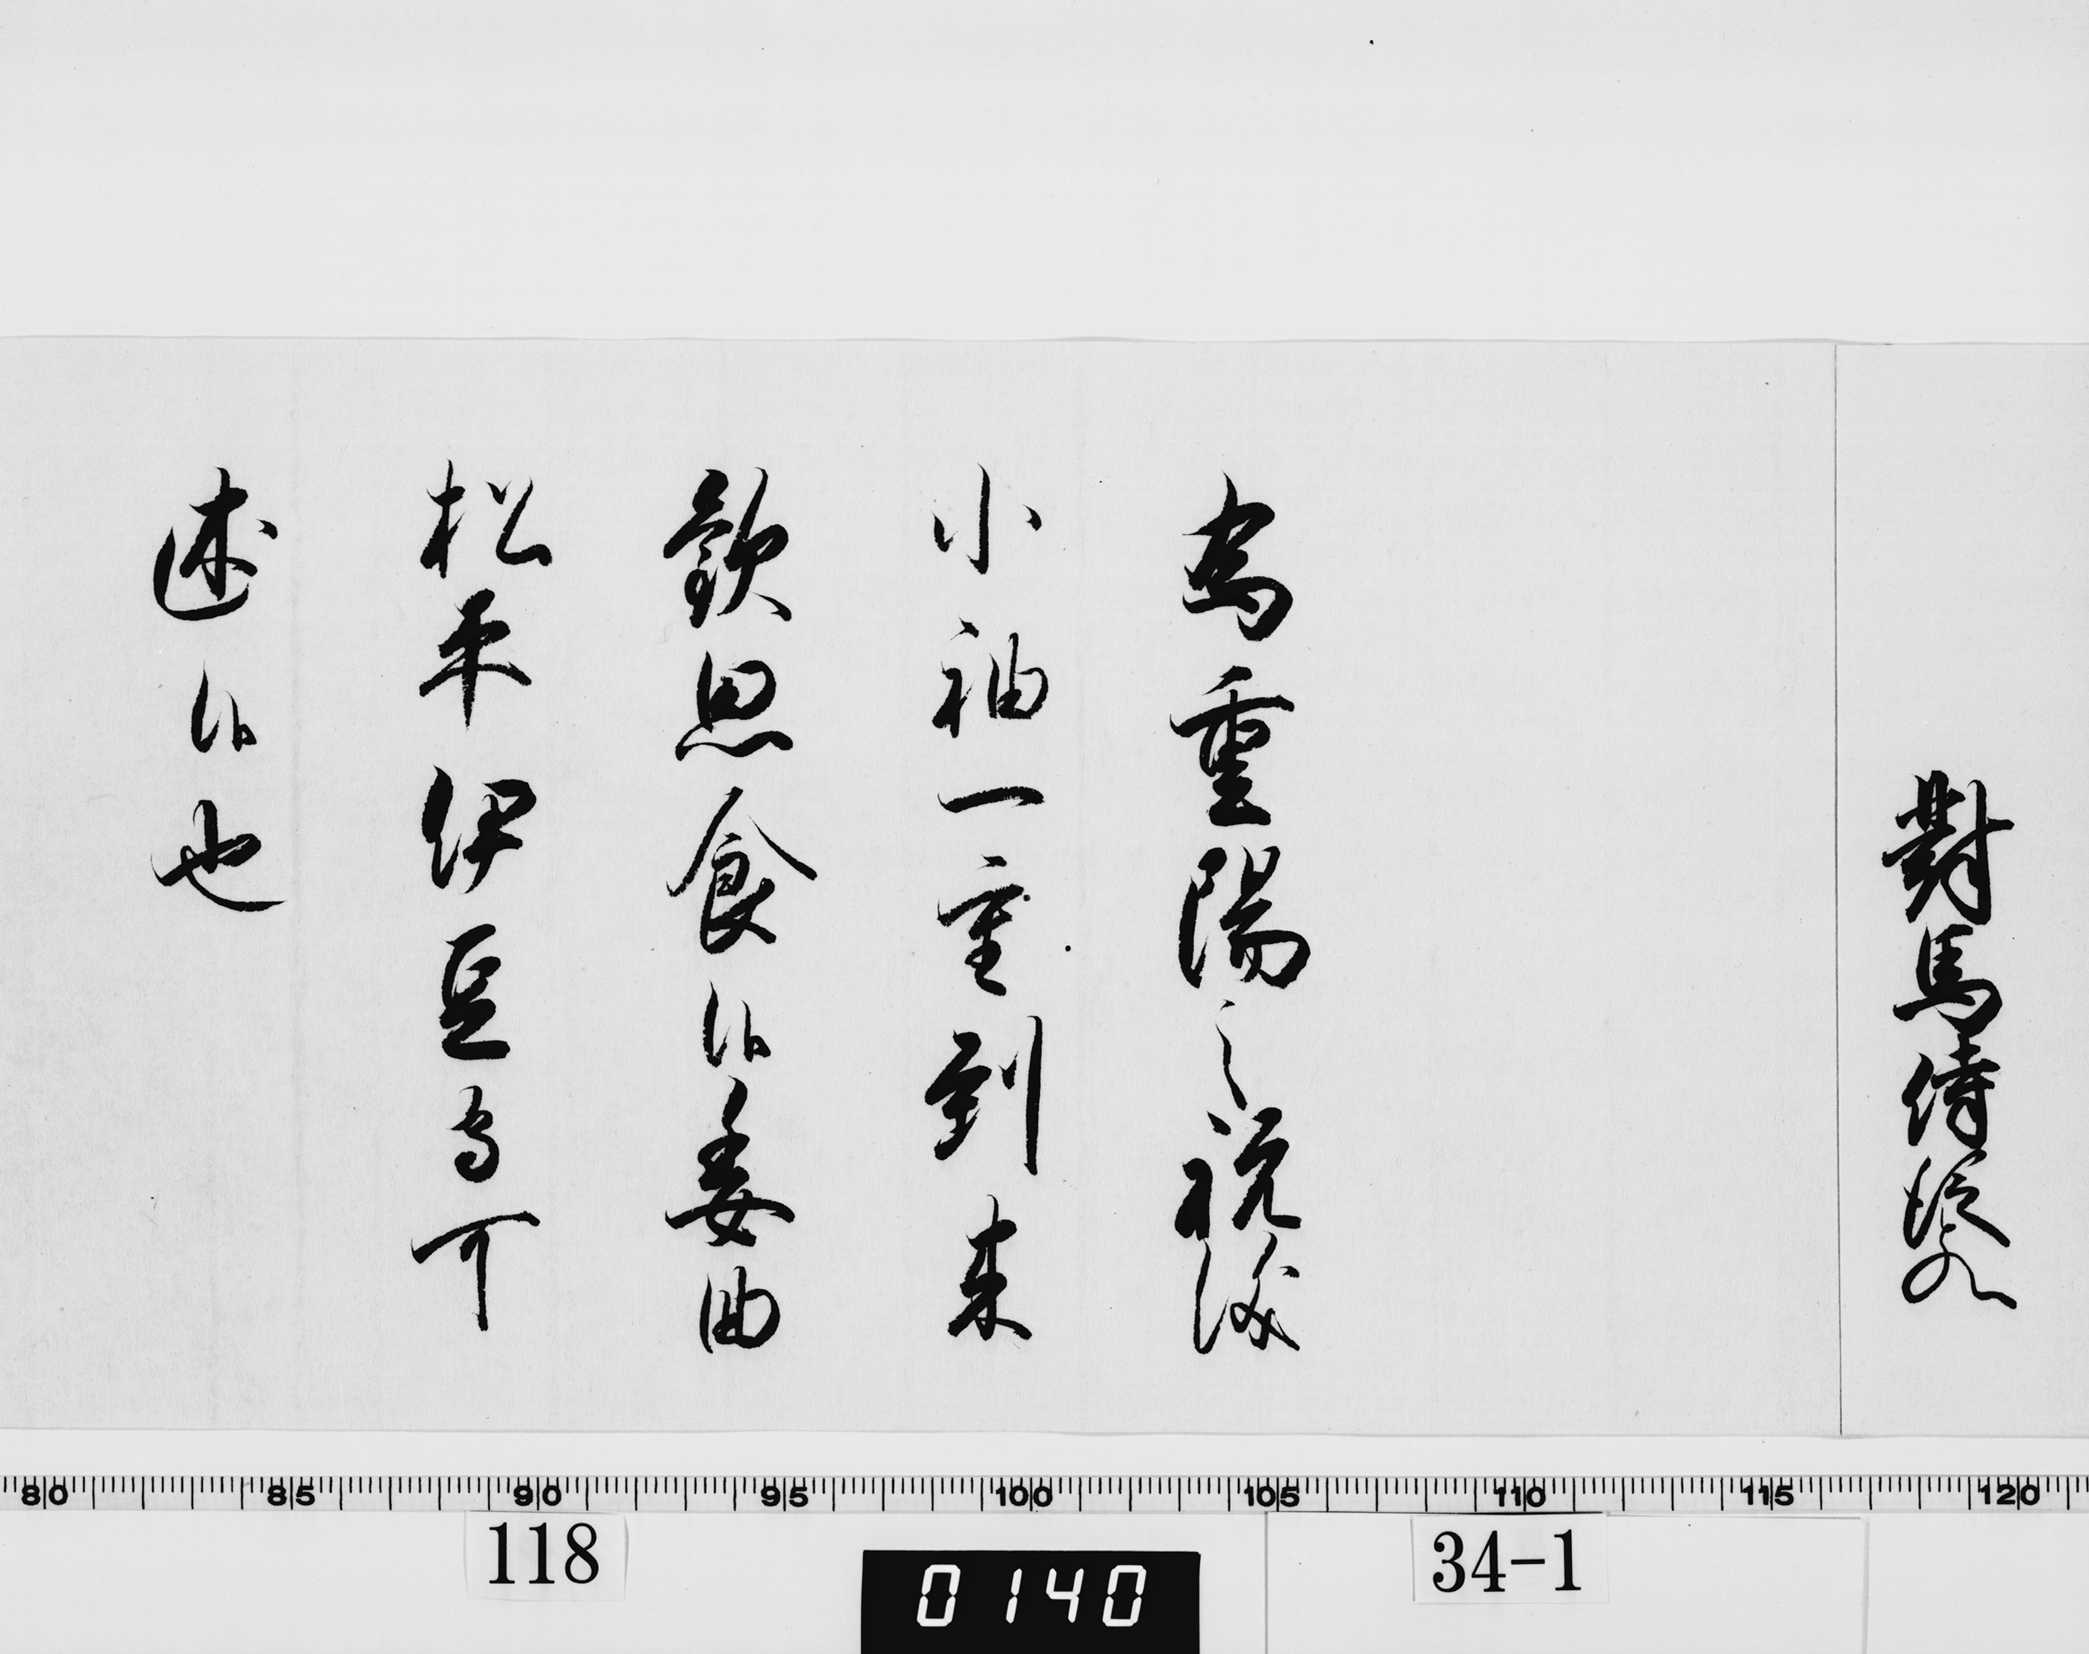 對馬侍従
為重陽之祝儀
小袖一重到来
歓思食候委曲
松平伊豆守可
述候也
80 85 90 95 100 105 110 115 120
118
0140
34-1